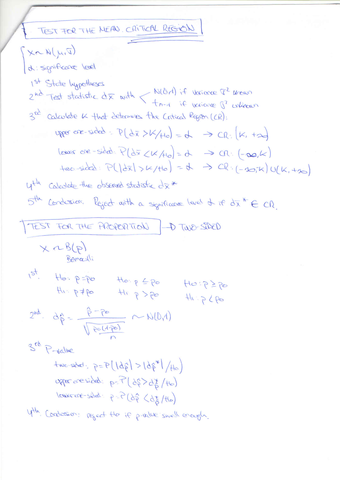 TEST FOR THE MEAN CRITICAL REGION
X ~ N(μ, σ²)
α: significance level
1st State hypotheses
2nd Test statistic dx̄ with < N(0,1) if variance σ² known
tn-1 if variance σ² unknown
3rd Calculate K that determines the Critical Region (CR).
upper one-sided: P(dx̄ > K/H0) = α → CR: (K, +∞)
lower one-sided: P(dx̄ < K/H0) = α → CR: (-∞, K)
two-sided: P(|dx̄| > K/H0) = α → CR: (-∞, K) U (K, +∞)
4th Calculate the observed statistic dx̄*
5th Conclusion: Reject with a significance level α if dx̄* ∈ CR.
TEST FOR THE PROPORTION → Two-sided
X ~ B(p)
Bernoulli
1st. H0: p = p0 H0: p ≤ p0 H0: p ≥ p0
H1: p ≠ p0 H1: p > p0 H1: p < p0
2nd. dp̂ = p̂ - p0 / √(p0(1-p0)/n) ~ N(0,1)
3rd P-value
two-sided: p = P(|dp̂| > |dp̂*| / H0)
upper one-sided: p = P(dp̂ > dp̂* / H0)
lower one-sided: p = P(dp̂ < dp̂* / H0)
4th Conclusion: reject H0 if p-value small enough.